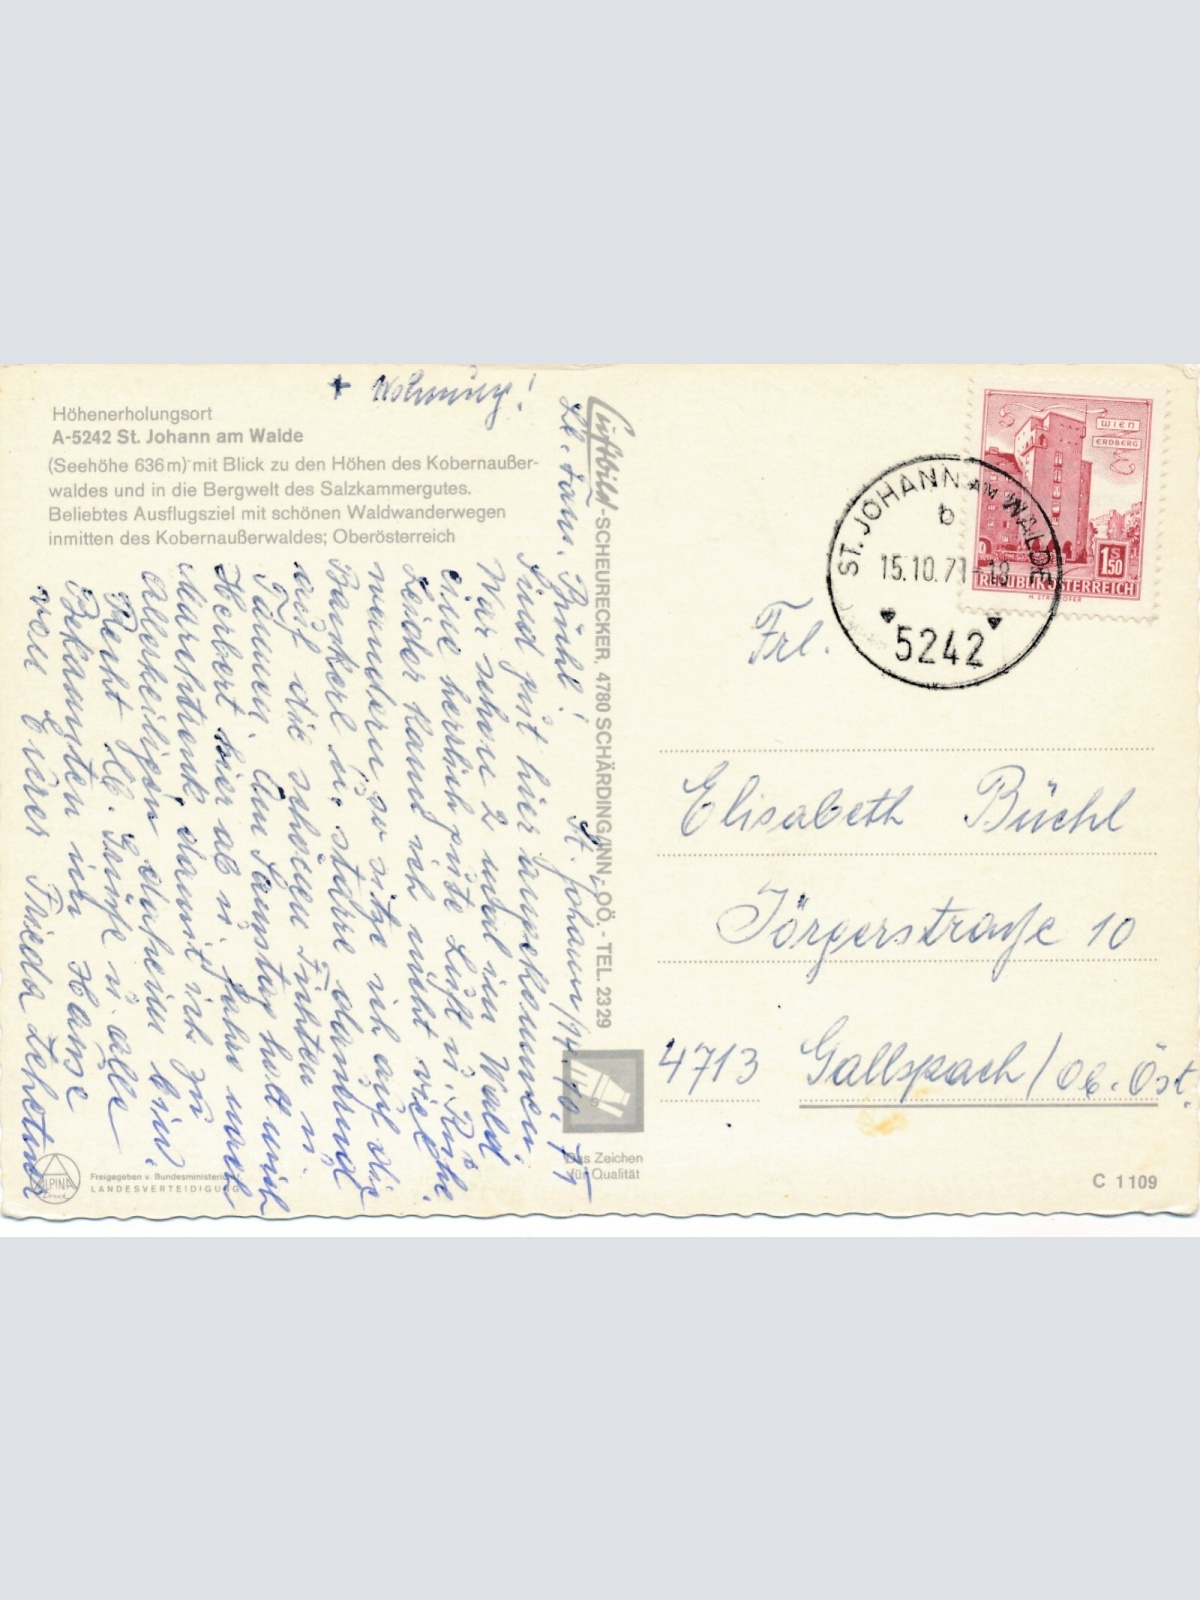 + Wohnung!
Höhenerholungsort
A-5242 St. Johann am Walde
(Seehöhe 636 m) mit Blick zu den Höhen des Kobernaußer-
waldes und in die Bergwelt des Salzkammergutes.
Beliebtes Ausflugsziel mit schönen Waldwanderwegen
inmitten des Kobernaußerwaldes; Oberösterreich
St. Johann, 14.10.71
Lb. Fam. Büchl!
Sind gut hier angekommen.
War schon 2 mal im Wald
eine herrlich gute Luft u. Ruhe.
Leider kann ich nicht viel
wandern, so sitze ich auf die
Bankerl u. starre dauernd
auf die schönen Fichten u.
Tannen. Am Samstag holt mich
Herbert hier ab u. fahre nach
damit ich zu
Allerheiligen daheim bin.
Recht lb. Grüße u. alle
Bekannten im Hause
von Eurer Frieda
Luftbild-SCHEURECKER, 4780 SCHÄRDING/INN - OÖ. - TEL. 2329
Das Zeichen
für Qualität
ALPINA
Druck
Freigegeben v. Bundesministerium f.
LANDESVERTEIDIGUNG
WIEN
ERDBERG
S
1.50
REPUBLIK ÖSTERREICH
H. STROHOFER
ST. JOHANN AM WALDE
b
15.10.71-18
5242
Frl.
Elisabeth Büchl
Jörgerstraße 10
4713 Gallspach / Ob. Öst.
C 1109